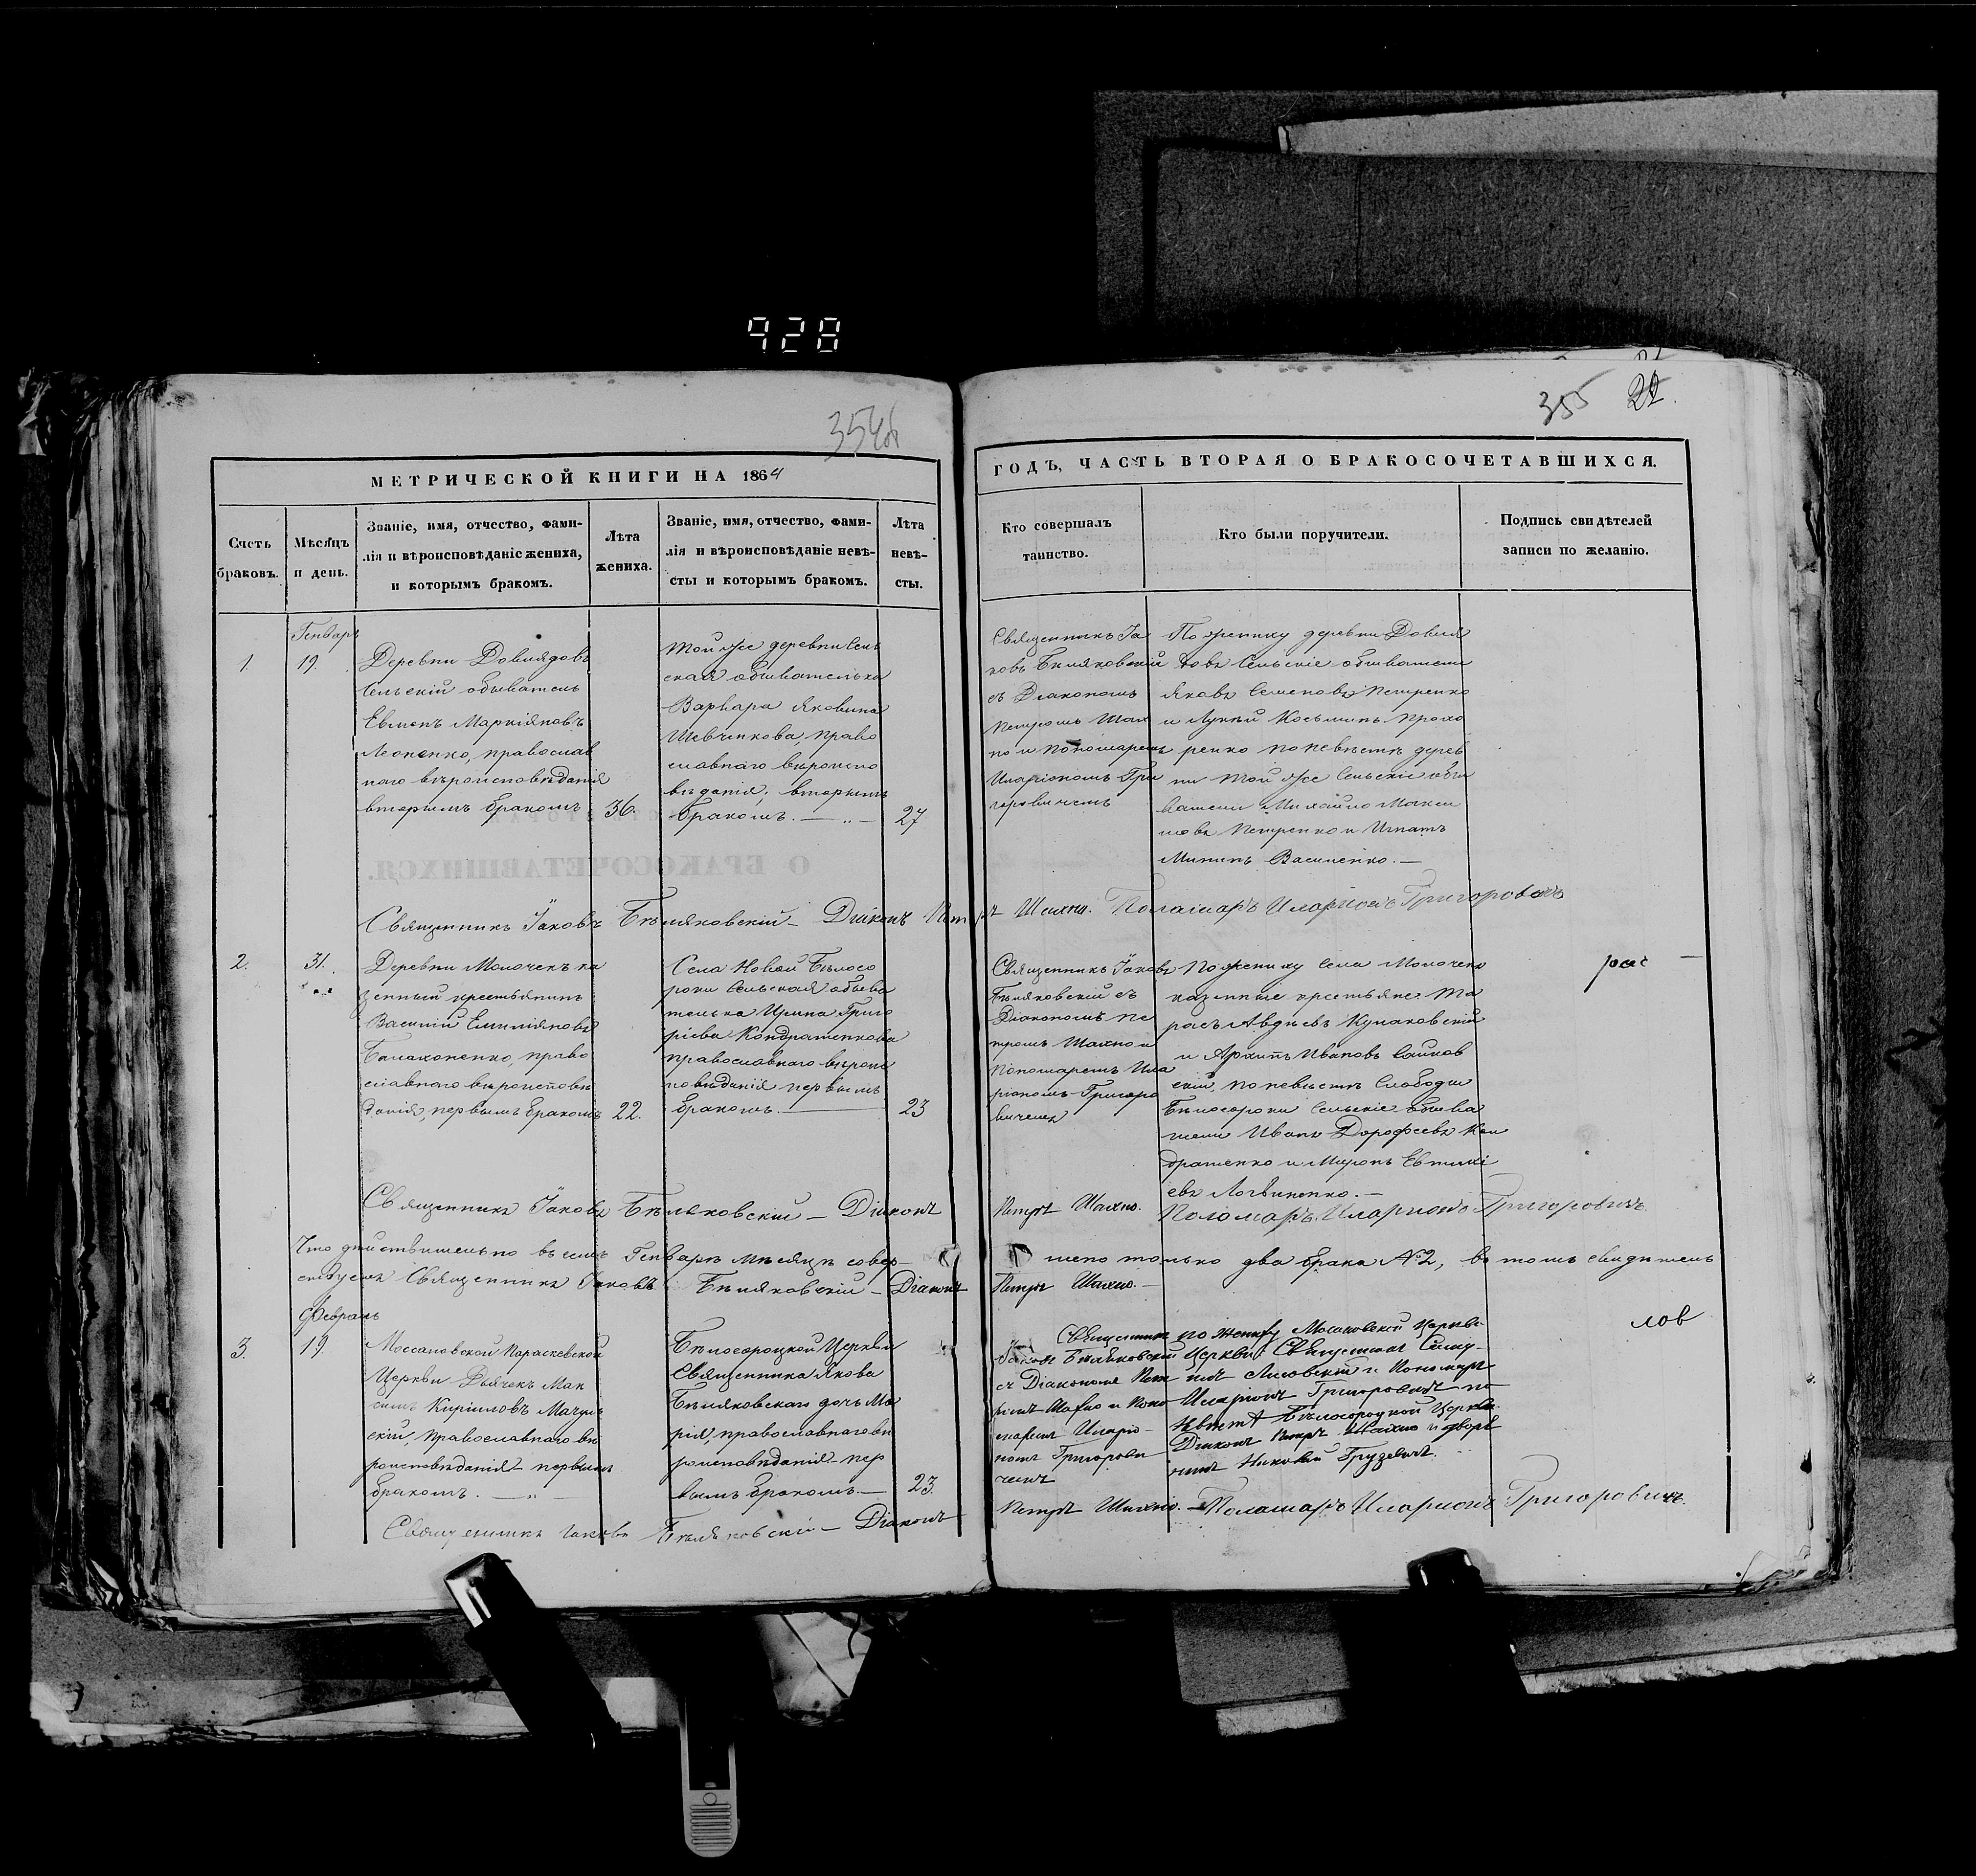 928
354об
355 22.
МЕТРИЧЕСКОЙ КНИГИ НА 1864
ГОДЪ, ЧАСТЬ ВТОРАЯ О БРАКОСОЧЕТАВШИХСЯ.
Счетъ
браковъ.
Мѣсяцъ
и день.
Званіе, имя, отчество, фами-
лія и вѣроисповѣданіе жениха,
и которымъ бракомъ.
Лѣта
жениха.
Званіе, имя, отчество, фами-
лія и вѣроисповѣданіе невѣ-
сты и которымъ бракомъ.
Лѣта
невѣ-
сты.
Кто совершалъ
таинство.
Кто были поручители.
Подпись свидѣтелей
записи по желанію.
1.
Генваря
19.
Деревни Довгядовъ
Сельскій обыватель
Евменъ Маркіяновъ
Леоненко, православ
наго вѣроисповѣданія
вторымъ бракомъ
36.
Той же деревни Сель
ская обывателька
Варвара Яковина
Шевченкова, право
славнаго вѣроиспо
вѣданія, вторымъ
бракомъ. — „ —
27
Священникъ Іа
ковъ Бѣляковскій
съ Діакономъ
Петромъ Шах
но и пономаремъ
Иларіономъ Гри
горовичемъ
По жениху деревни Довгя
довъ Сельскіе обыватели
Яковъ Семеновъ Петренко
и Лукій Косьминъ Прохо
ренко по невѣстѣ дерев
ни той же Сельскіе обы
ватели Михайло Макси
мовъ Петренко и Игнатъ
Мининъ Василенко. —
Священникъ Іаковъ Бѣляковскій — Діяконъ Петръ Шахно. Поламарь Иларіонъ Григоровичъ
2.
31.
Деревни Молочекъ ка
зенный крестьянинъ
Василій Емиліяновъ
Балахоненко, право
славнаго вѣроисповѣ
данія, первымъ бракомъ
22.
Села Новой Бѣлосо
роки Сельская обыва
телька Ирина Григо
рієва Кондратенкова
православнаго вѣроис
повѣданія первымъ
бракомъ. —
23
Священникъ Іаковъ
Бѣляковскій съ
Діакономъ Пе
тромъ Шахно и
пономаремъ Ила
ріономъ Григоро
вичемъ
По жениху Села Молочекъ
казенные крестьяне Та
расъ Авдѣевъ Кулаковскій
и Архипъ Ивановъ Сайков
скій, по невѣстѣ Слободы
Бѣлосороки Сельскіе обыва
тели Иванъ Дорофеевъ Кон
дратенко и Миронъ Евтихі
евъ Логвиненко. —
рас —
Священникъ Іаковъ Бѣляковскій — Діяконъ Петръ Шахно. Поломарь Иларіонъ Григоровичъ.
Что дѣйствительно въ семъ Генварѣ мѣсяцѣ совер- шено только два брака №2, въ томъ свидѣтель
ствуемъ Священникъ Іаковъ Бѣляковскій — Діаконъ Петръ Шахно. —
Февраль
3.
19.
Моссановской Параскевской
Церкви Дьячекъ Мак
симъ Кириловъ Мачуль
скій, Православнаго вѣ
роисповѣданія первымъ
бракомъ. — „ —
Бѣлосороцкой Церкви
Священника Якова
Бѣляковскаго дочь Ма
рія, православнаго вѣ
роисповѣданія пер
вымъ бракомъ. —
23.
Священникъ
Іаковъ Бѣляковскій
съ Діакономъ Пет
ромъ Шахно и Поно
маремъ Иларіо-
номъ Григорови
чемъ
по жениху Мосановской Церкви
Церкви Священникъ
Лисовскій и Пономарь
Иларіонъ Григоровичъ по
невѣстѣ Бѣлосороцкой Церкви
Діаконъ Петръ Шахно и дворя
нинъ Николай Грудевичъ.
лов
Священникъ Іаковъ Бѣляковскій — Діаконъ Петръ Шахно. — Поламарь Иларіонъ Григоровичъ.